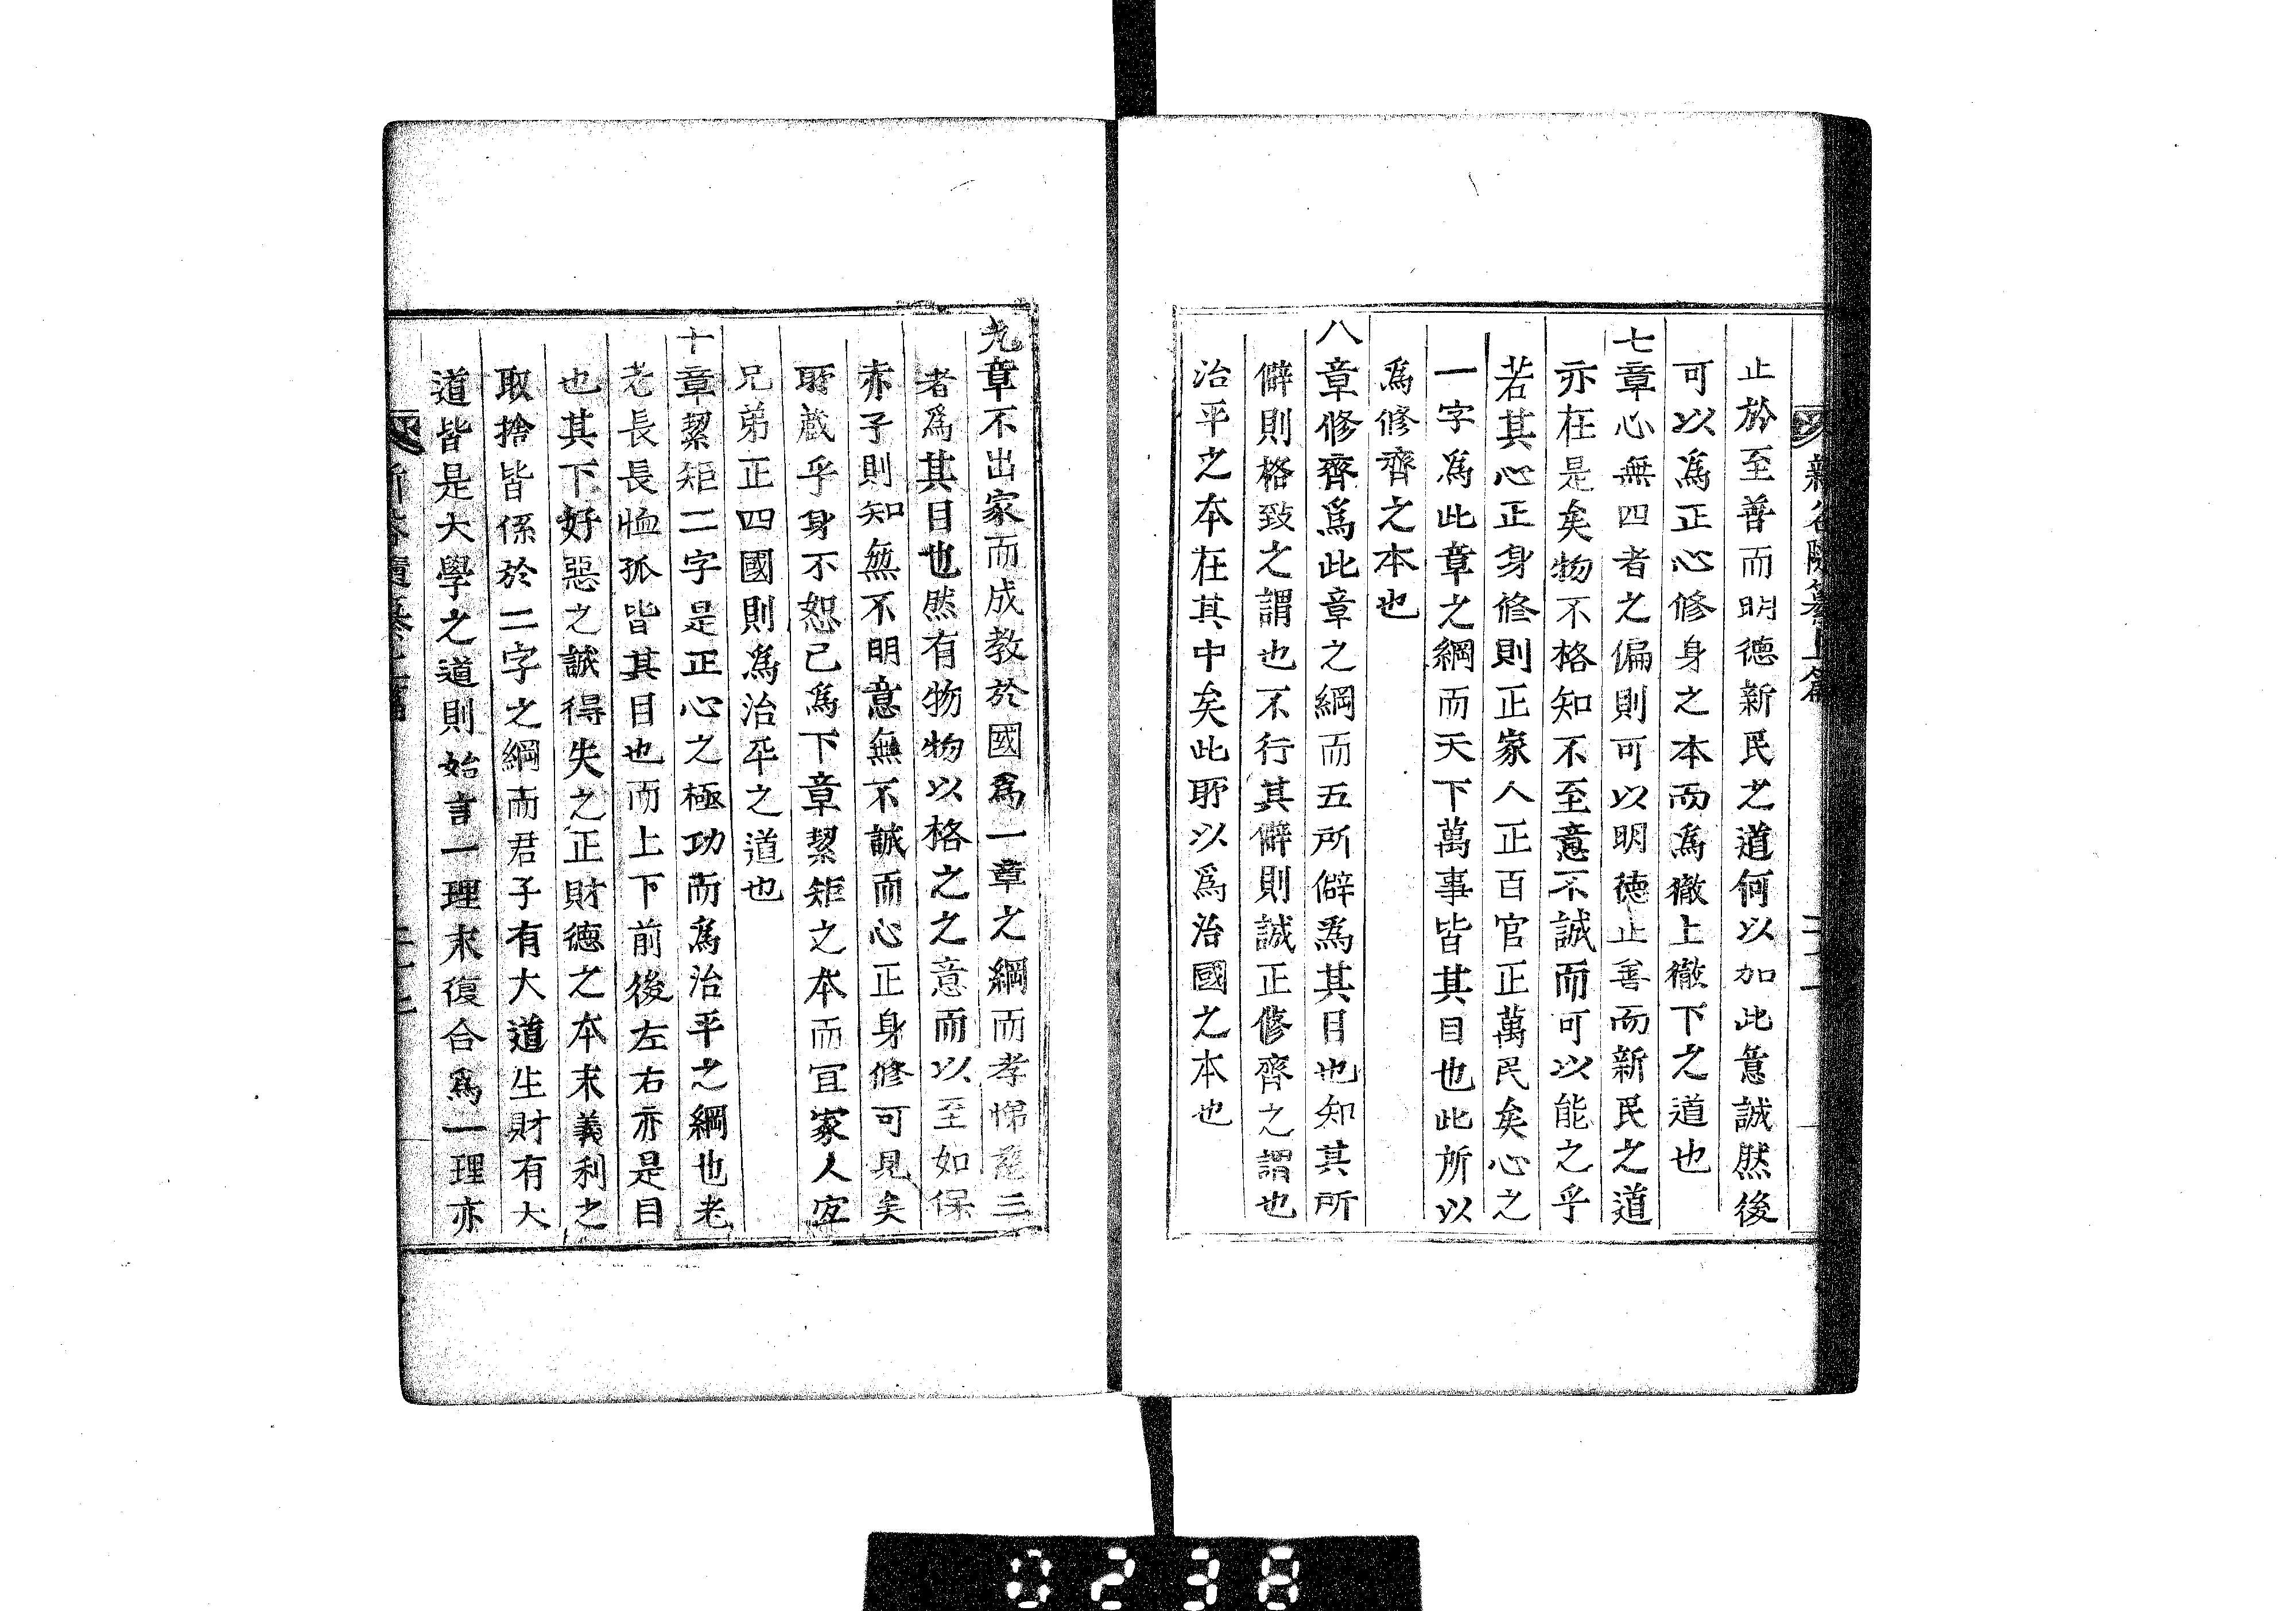 止於至善而明德新民之道何以加此意誠然後
可以為正心修身之本而為徹上徹下之道也
七章心無四者之偏則可以明德止善而新民之道
亦在是矣物不格知不至意不誠而可以能之乎
若其心正身修則正家人正百官正萬民矣心之
一字為此章之綱而天下萬事皆其目也此所以
為修齊之本也
八章修齊為此章之綱而五所僻為其目也知其所
僻則格致之謂也不行其僻則誠正修齊之謂也
治平之本在其中矣此所以為治國之本也
九章不出家而成教於國為一章之綱而孝悌慈三
者為其目也然有物物以格之之意而以至如保
赤子則知無不明意無不誠而心正身修可見矣
所藏乎身不恕己為下章絜矩之本而宜家人宜
兄弟正四國則為治平之道也
十章絜矩二字是正心之極功而為治平之綱也老
老長長恤孤皆其目也而上下前後左右亦是目
也其下好惡之誠得失之正財德之本末義利之
取捨皆係於二字之綱而君子有大道生財有大
道皆是大學之道則始言一理末復合為一理亦
0238